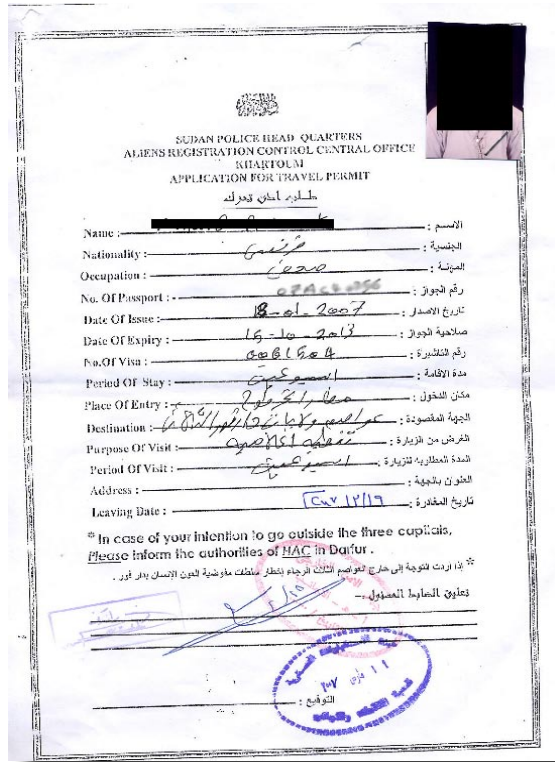 SUDAN POLICE HEAD QUARTERS
ALIENS REGISTRATION CONTROL CENTRAL OFFICE
KHARTOUM
APPLICATION FOR TRAVEL PERMIT
طلب اذن تحرك
Name : الاسم :
Nationality : فرنسي الجنسية :
Occupation : صحفي المهنة :
No. Of Passport : - رقم الجواز :
Date Of Issue : 18-01-2007 تاريخ الاصدار :
Date Of Expiry : 15-10-2013 صلاحية الجواز :
No.Of Visa : رقم التاشيرة :
Period Of Stay : اسبوعين مدة الاقامة :
Place Of Entry : مطار الخرطوم مكان الدخول :
Destination : عواصم ولايات دارفور الثلاث الجهة المقصودة :
Purpose Of Visit : تغطية اعلامية الغرض من الزيارة :
Period Of Visit : اسبوعين المدة المطلوبه للزيارة :
Address : العنوان بالجهة :
Leaving Date : تاريخ المغادرة :
* In case of your intention to go outside the three capitals,
Please inform the authorities of HAC in Darfur .
* إذا اردت التوجة إلى خارج العواصم الثلاث الرجاء إخطار سلطات مفوضية العون الإنسان بدار فور .
تعليق الضابط المسؤول :-
التوقيع :